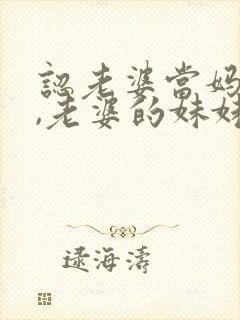 認老婆當媽
,老婆的妹妹
逯海濤